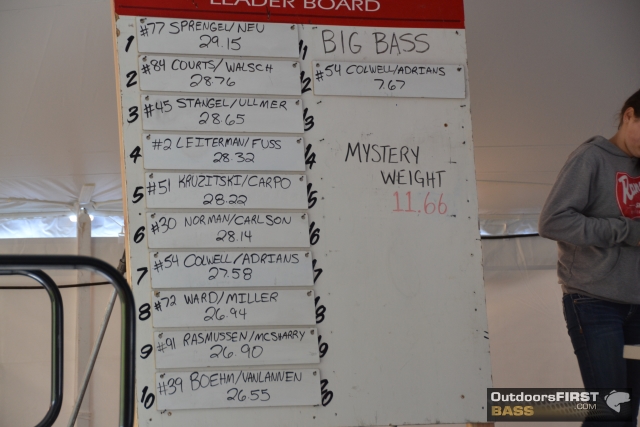 LEADER BOARD
1 #77 SPRENGEL/NEU
29.15
2 #84 COURTS/WALSCH
28.76
3 #45 STANGEL/ULLMER
28.65
4 #2 LEITERMAN/FUSS
28.32
5 #51 KRUZITSKI/CARPO
28.22
6 #30 NORMAN/CARLSON
28.14
7 #54 COLWELL/ADRIANS
27.58
8 #72 WARD/MILLER
26.94
9 #91 RASMUSSEN/MCSHARRY
26.90
10 #39 BOEHM/VANLANNEN
26.55
BIG BASS
#54 COLWELL/ADRIANS
7.67
MYSTERY
WEIGHT
11.66
OutdoorsFIRST
BASS .COM